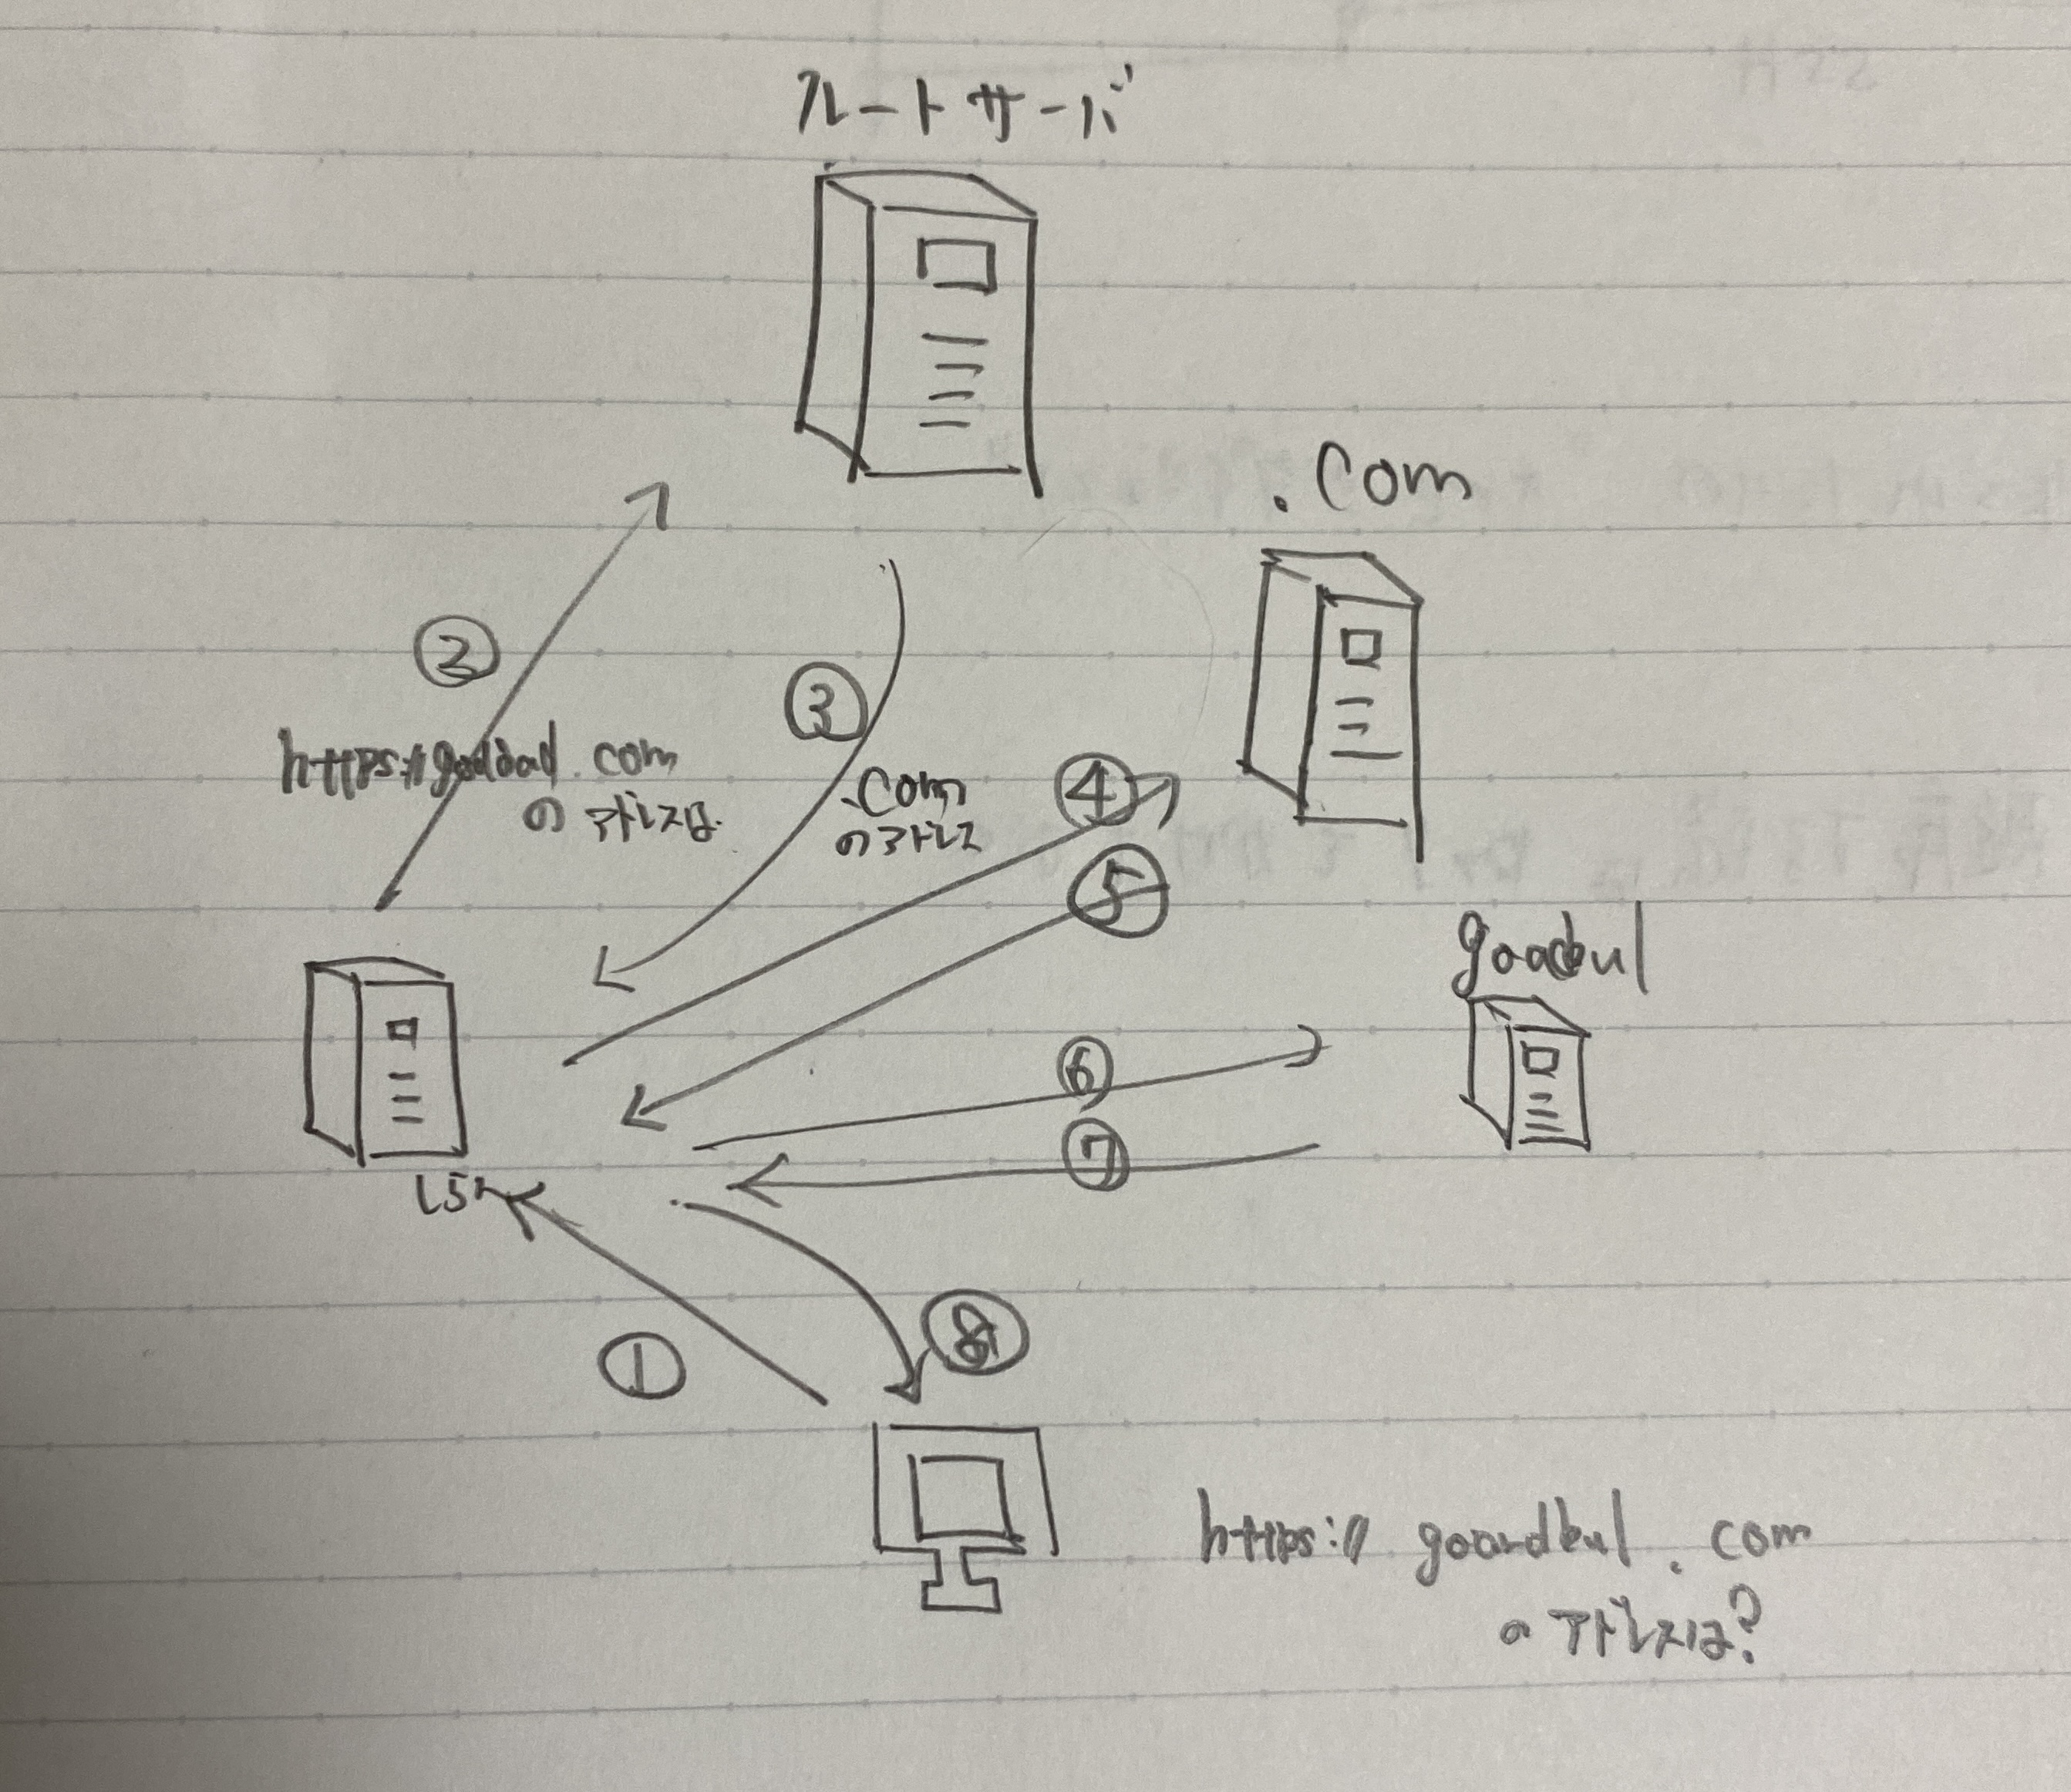 ルートサーバ
.com
②
③
https://goodad.com
のアドレスは
.com
のアドレス
④
⑤
goadbul
⑥
⑦
①
⑧
https://goardbul.com
のアドレスは?